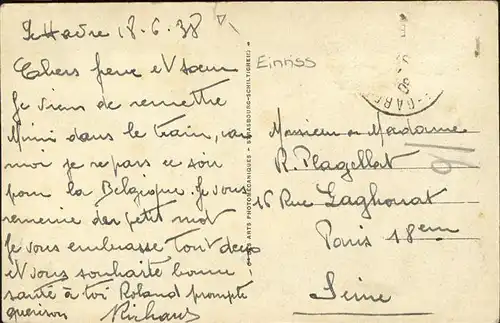 Le Havre 18-6-38
Chers frere et sœur
Je viens de remettre
Mimi dans le train, car
moi je repars ce soir
pour la Belgique. Je vous
remercie des petit mot
Je vous embrasse tout deux
et vous souhaite bonne
santé à toi Roland prompte
guerison
Einriss
ARTS PHOTOMÉCANIQUES - STRASBOURG-SCHILTIGHEIM
GARE
Monsieur ou Madame
R. Plagellat
16 Rue Laghouat
Paris 18em
Seine